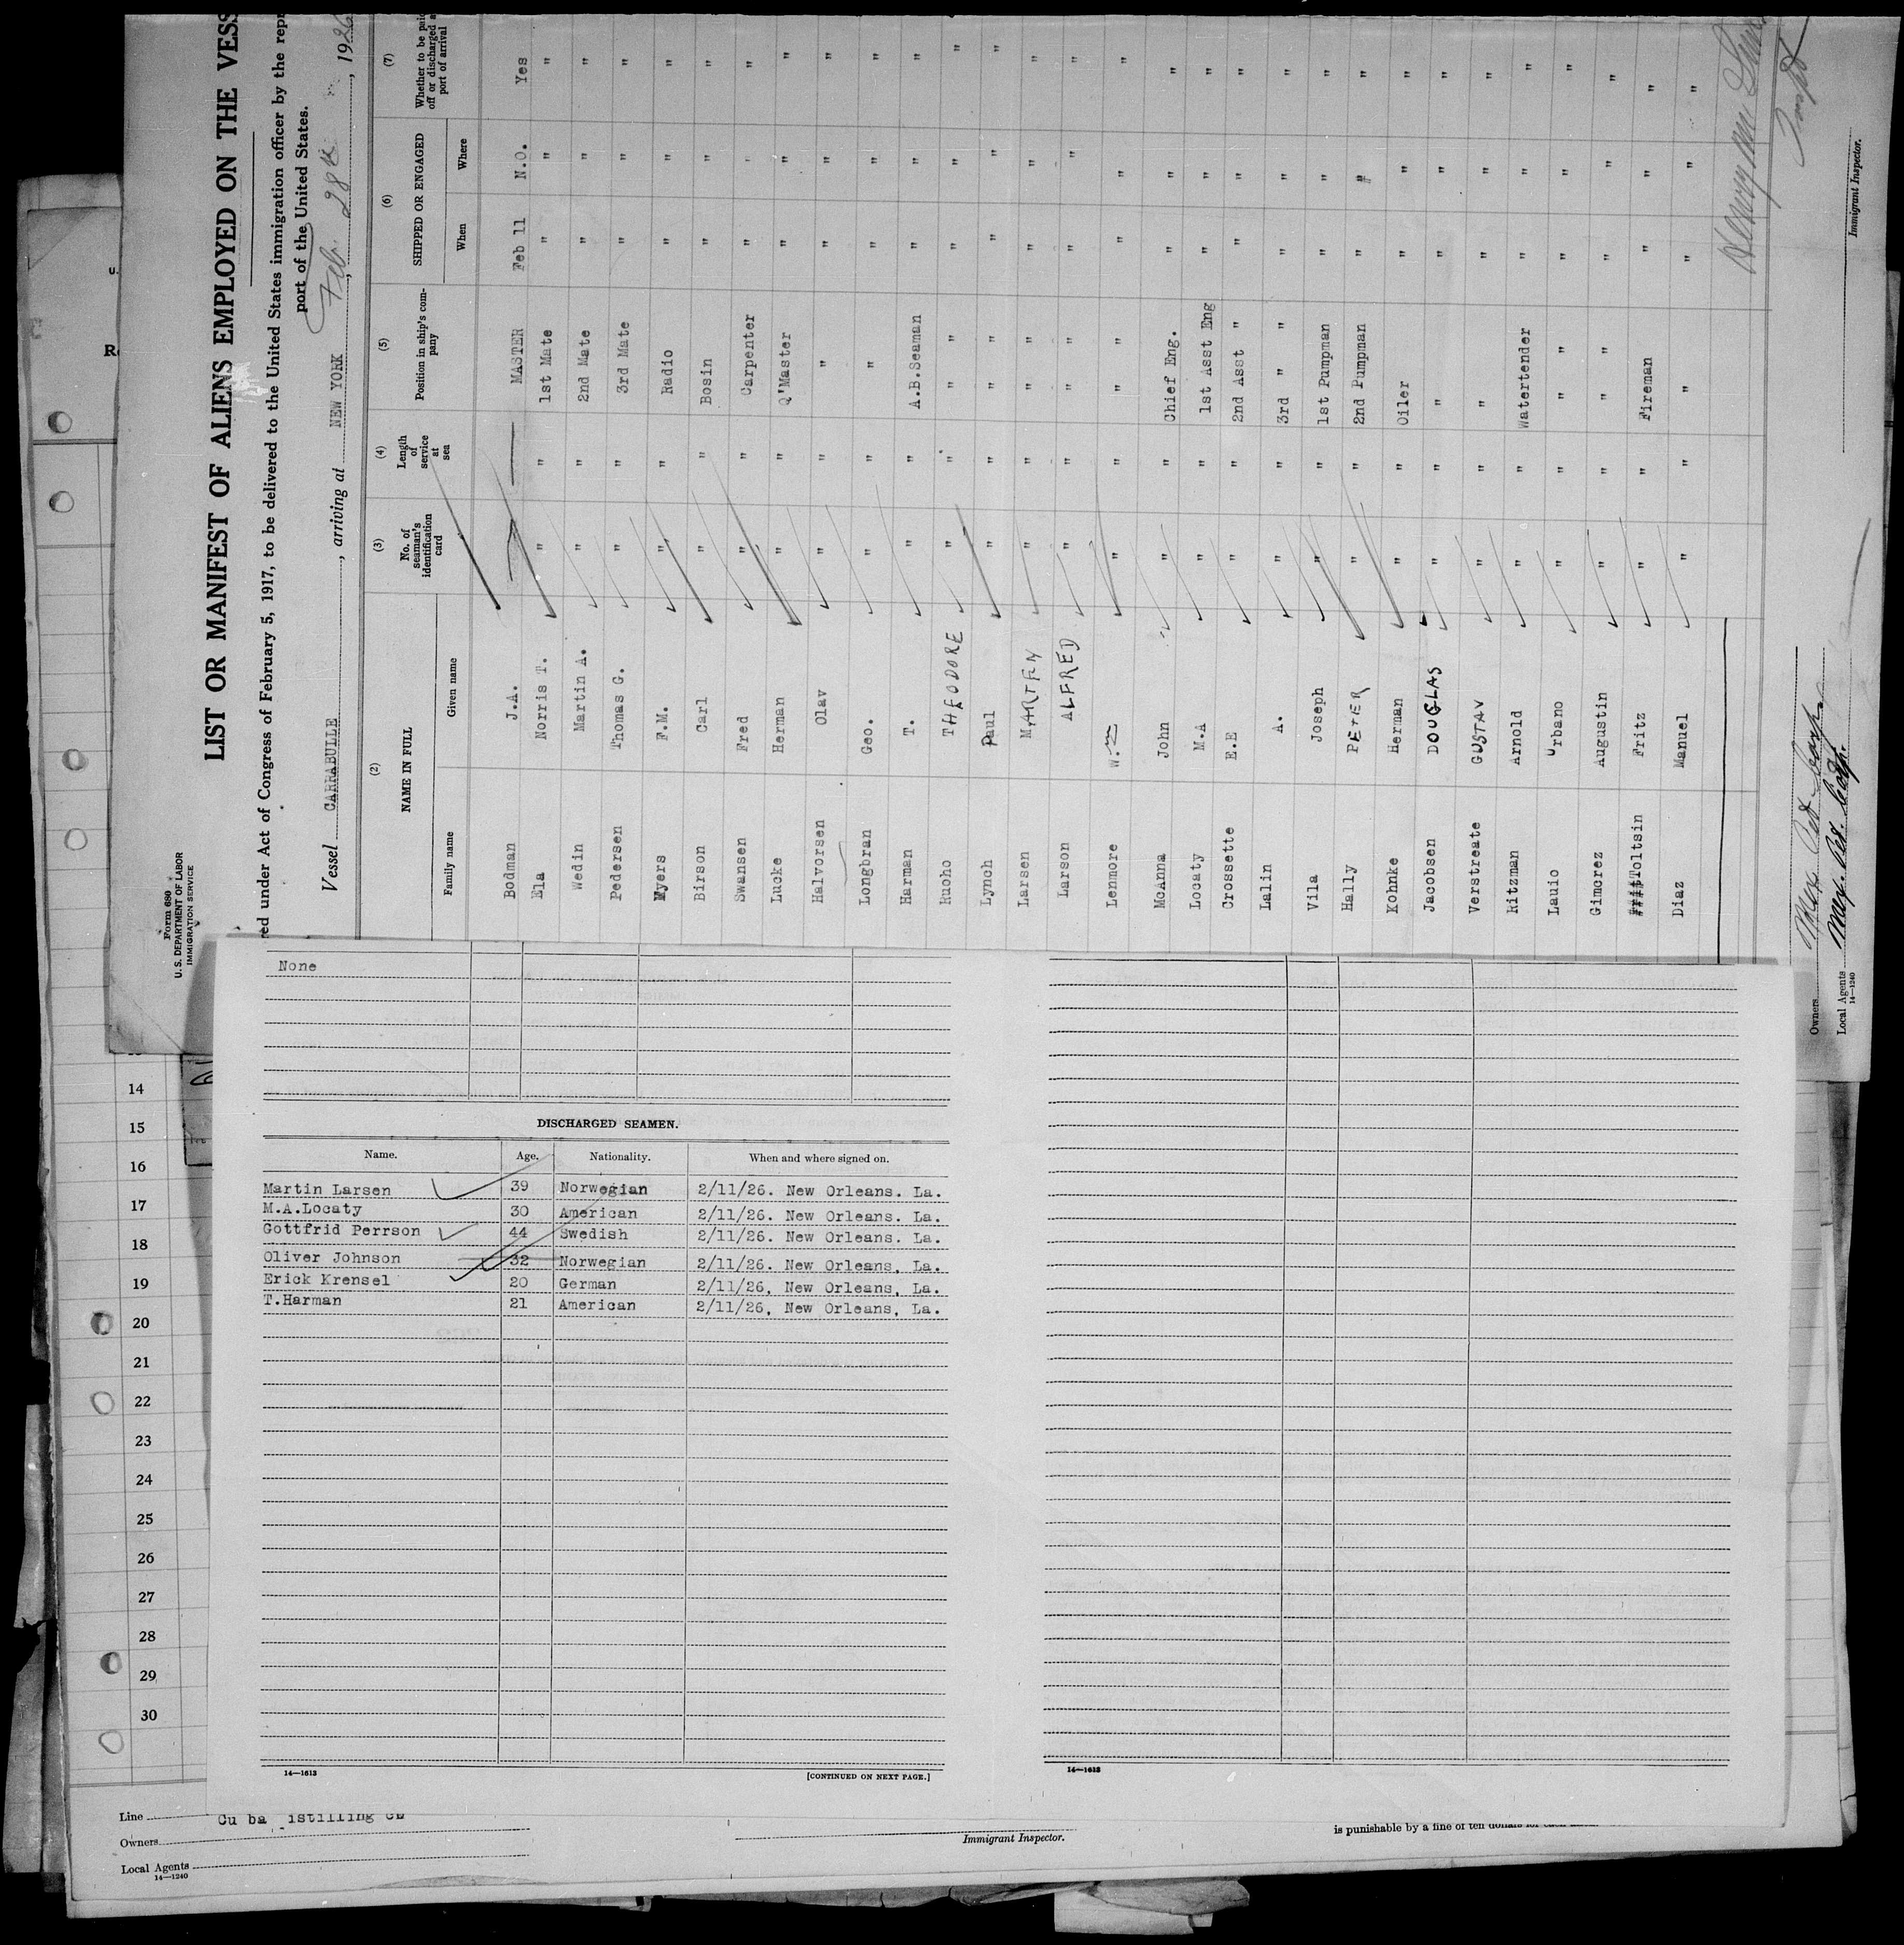 Form 680
U. S. DEPARTMENT OF LABOR
IMMIGRATION SERVICE
LIST OR MANIFEST OF ALIENS EMPLOYED ON THE VESS
red under Act of Congress of February 5, 1917, to be delivered to the United States immigration officer by the repr
port of the United States.
Vessel CARRABULLE, arriving at NEW YORK, Feb. 28th, 1926
(2) (3) (4) (5) (6) (7)
NAME IN FULL No. of seaman's identification card Length of service at sea Position in ship's company SHIPPED OR ENGAGED Whether to be paid off or discharged a port of arrival
Family name Given name When Where
Bodman J.A. MASTER Feb 11 N.O. Yes
Ela Norris T. " " 1st Mate " " "
Wedin Martin A. " " 2nd Mate " " "
Pedersen Thomas G. " " 3rd Mate " " "
Myers F.M. " " Radio " " "
Birson Carl " " Bosin " " "
Swansen Fred " " Carpenter " " "
Lucke Herman " " Q'Master " " "
Halvorsen Olav " " " " " "
Longbran Geo. " " " " " "
Harman T. " " A.B.Seaman " " "
Ruoho THEODORE " " " " " " "
Lynch Paul " " " " " " "
Larsen MARTEN " " " " " " "
Larson ALFRED " " " " " " "
Lenmore W.m " " " " " " "
McAnna John " " Chief Eng. " " "
Locaty M.A " " 1st Asst Eng " " "
Crossette E.E " " 2nd Asst " " " "
Lalin A. " " 3rd " " " " "
Vila Joseph " " 1st Pumpman " " "
Hally PETER " " 2nd Pumpman " " "
Kohnke Herman " " Oiler " " "
Jacobsen DOUGLAS " " " " " "
Verstreate GUSTAV " " " " " "
Ritzman Arnold " " Watertender " " "
Lauio Urbano " " " " " " "
Gimorez Augustin " " " " " " "
Toltsin Fritz " " Fireman " " "
Diaz Manuel " " " " " "
Immigrant Inspector.
Owners
Local Agents
14—1240
None
DISCHARGED SEAMEN.
Name. Age. Nationality. When and where signed on.
Martin Larsen 39 Norwegian 2/11/26. New Orleans. La.
M.A.Locaty 30 American 2/11/26. New Orleans. La.
Gottfrid Perrson 44 Swedish 2/11/26. New Orleans. La.
Oliver Johnson 32 Norwegian 2/11/26. New Orleans, La.
Erick Krensel 20 German 2/11/26, New Orleans, La.
T.Harman 21 American 2/11/26, New Orleans, La.
14—1613
[CONTINUED ON NEXT PAGE.]
14—1613
14
15
16
17
18
19
20
21
22
23
24
25
26
27
28
29
30
Line Cu ba istilling
Owners
Local Agents
14—1240
Immigrant Inspector.
is punishable by a fine of ten dollars for